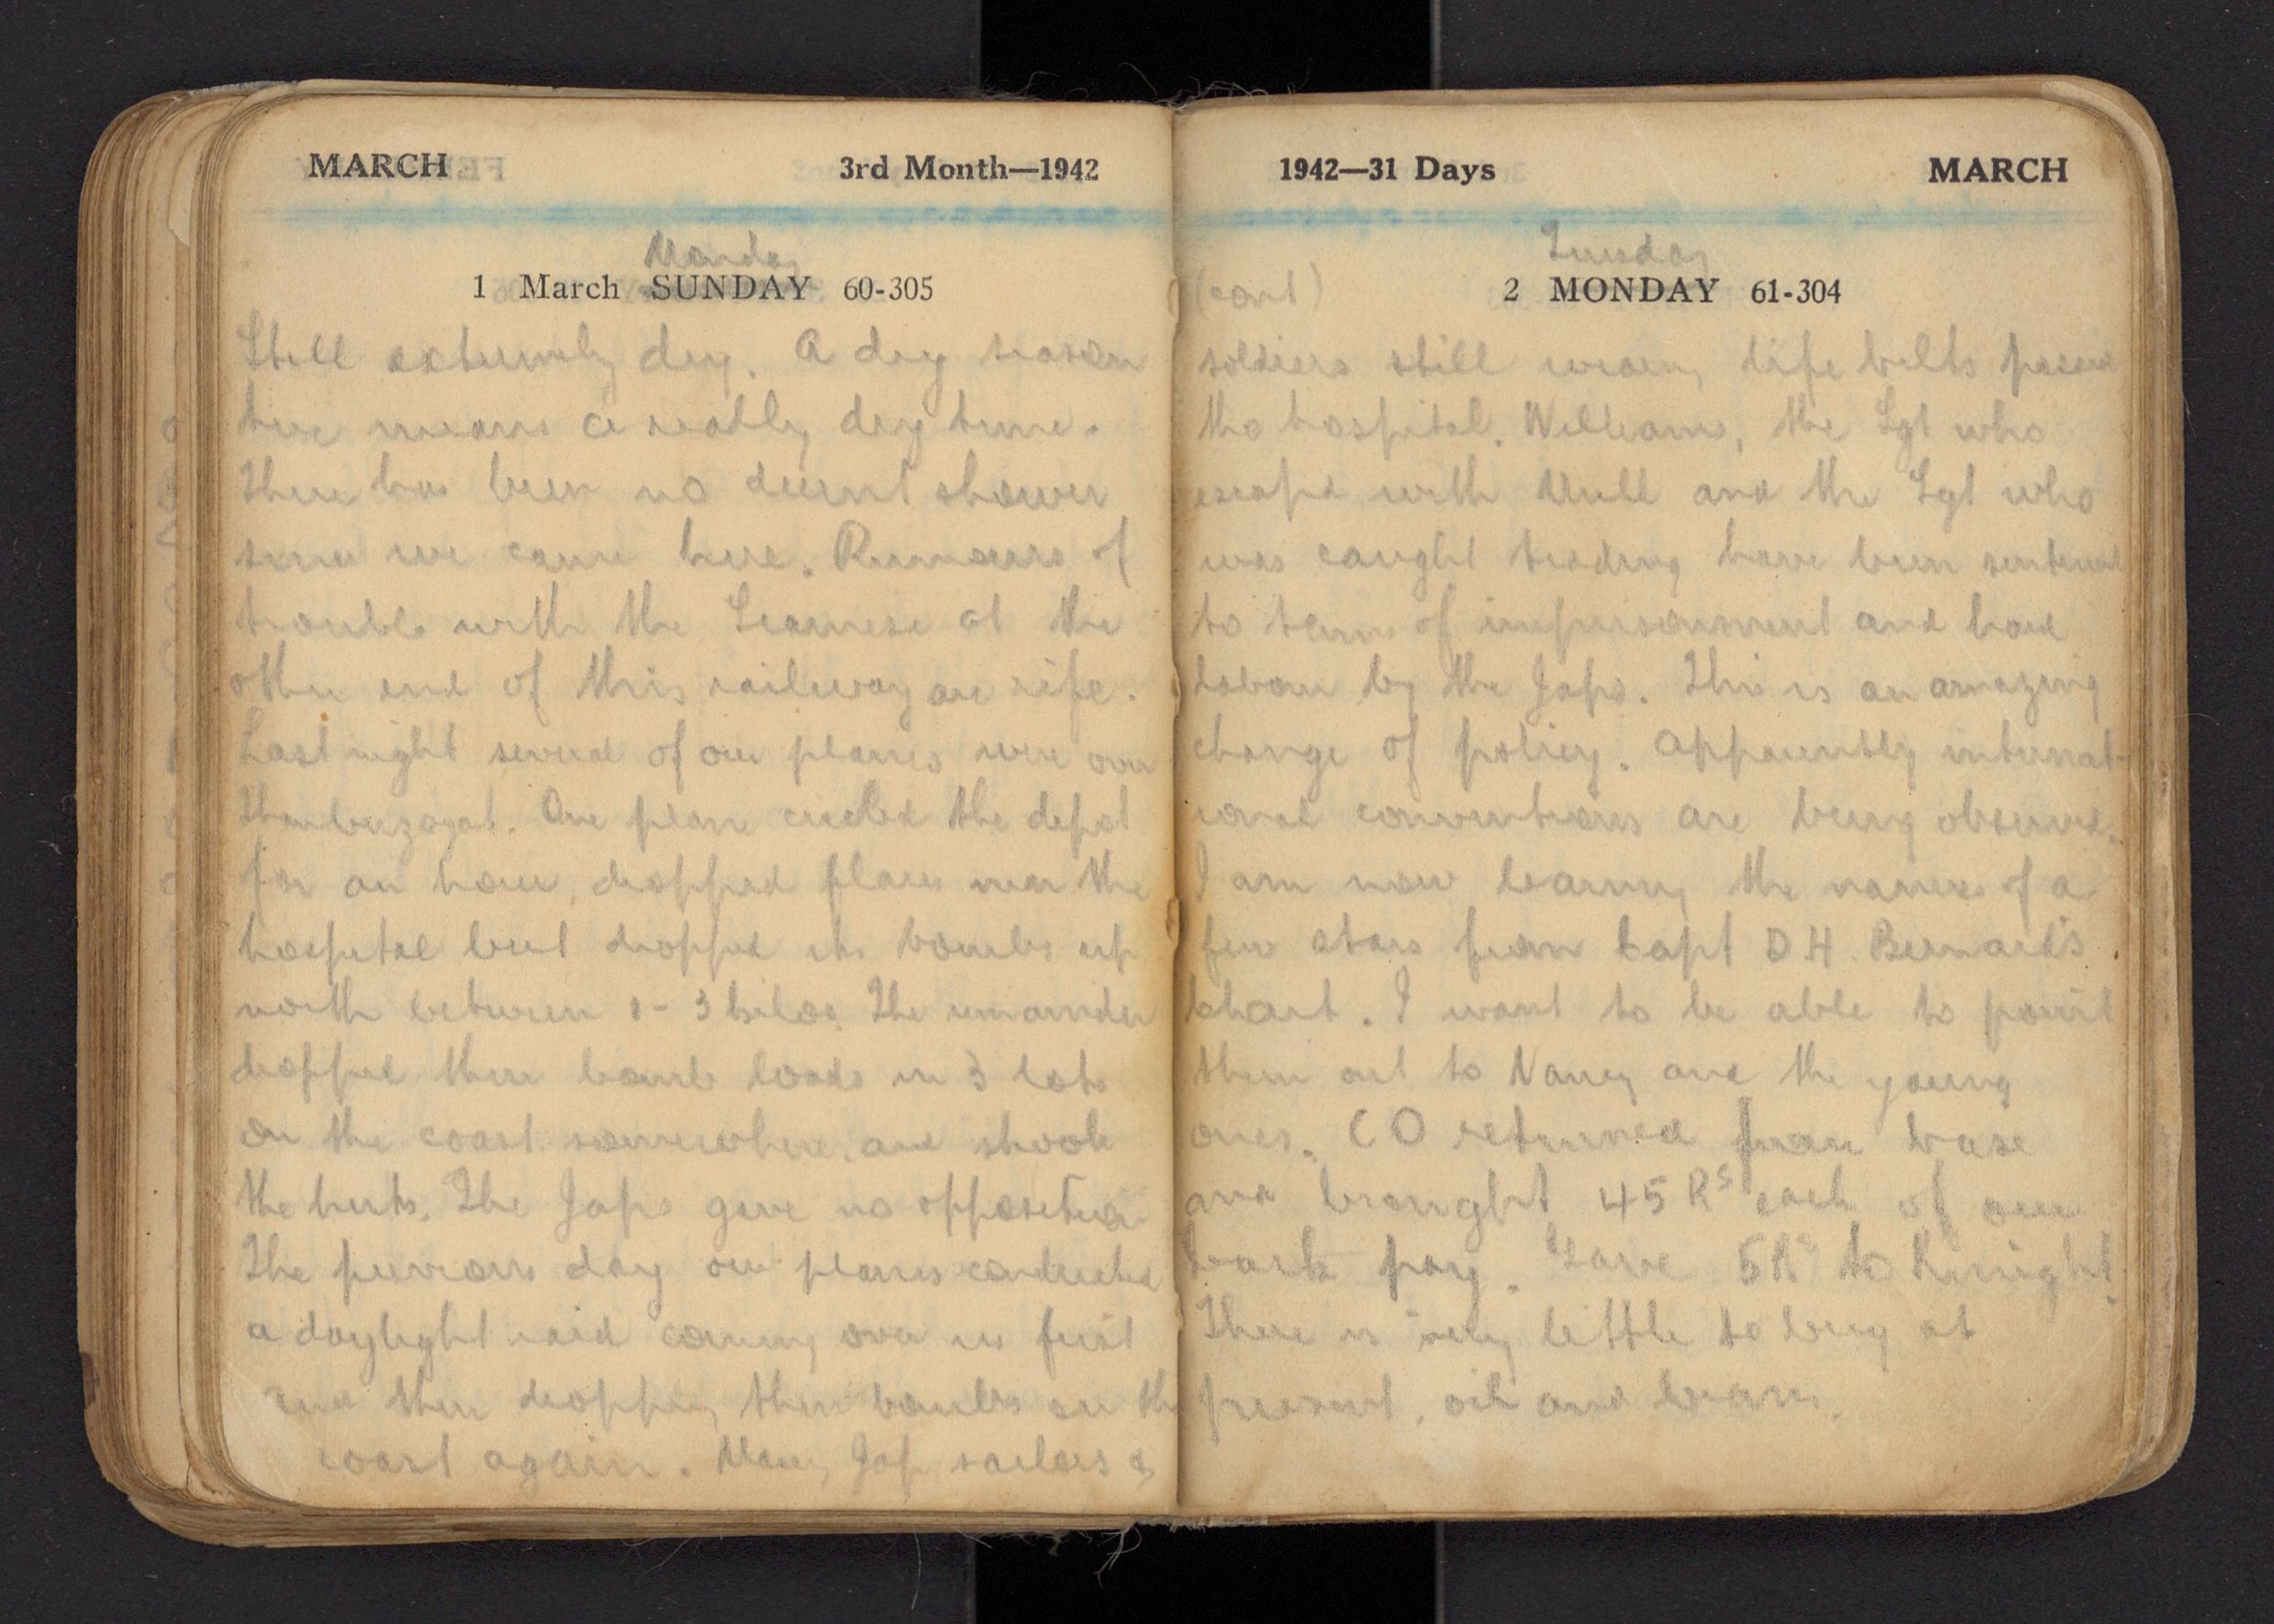 MARCH 3rd Month—1942
Monday
1 March SUNDAY 60-305
Still extremely dry. A dry season
here means a really dry time.
There has been no decent shower
since we came here. Rumours of
trouble with the Siamese at the
other end of this railway are rife.
Last night several of our planes were over
Thanbuzayat. One plane circled the depot
for an hour, dropped flares near the
hospital but dropped its bombs up
north between 1-3 kilos. The remainder
dropped there bomb loads in 3 lots
on the coast somewhere and shook
the huts. The Japs gave no opposition
The previous day our planes conducted
a daylight raid coming over us first
and then dropping their bombs on the
coast again. Many Jap sailors &
1942—31 Days MARCH
Tuesday
(cont) 2 MONDAY 61-304
soldiers still wearing life belts passed
the hospital. Williams, the Sgt who
escaped with Mull and the Sgt who
was caught trading have been sentenced
to term of imprisonment and hard
labour by the Japs. This is an amazing
change of policy. Apparently internat-
ional conventions are being observed.
I am now learning the names of a
few stars from Capt D H. Barnard's
chart. I want to be able to point
them out to Nancy and the young
ones. CO returned from base
and brought 45 Rs each of our
back pay. Gave 5Rs to Knight.
There is very little to buy at
present, oil and beans.